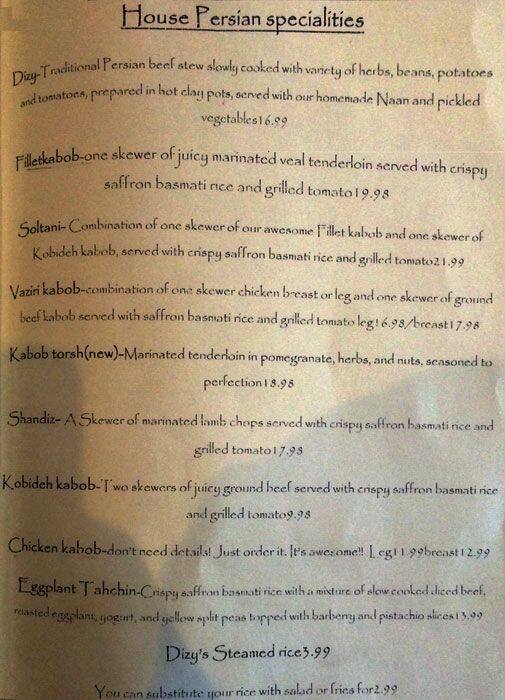 House Persian specialities
Dizy-Traditional Persian beef stew slowly cooked with variety of herbs, beans, potatoes
and tomatoes, prepared in hot clay pots, served with our homemade Naan and pickled
vegetables16.99
Filletkabob-one skewer of juicy marinated veal tenderloin served with crispy
saffron basmati rice and grilled tomato19.98
Soltani- Combination of one skewer of our awesome Fillet kabob and one skewer of
Kobideh kabob, served with crispy saffron basmati rice and grilled tomato21.99
Vaziri kabob-combination of one skewer chicken breast or leg and one skewer of ground
beef kabob served with saffron basmati rice and grilled tomato leg16.98/breast17.98
Kabob torsh(new)-Marinated tenderloin in pomegranate, herbs, and nuts, seasoned to
perfection18.98
Shandiz- A Skewer of marinated lamb chops served with crispy saffron basmati rice and
grilled tomato17.98
Kobideh kabob-Two skewers of juicy ground beef served with crispy saffron basmati rice
and grilled tomato9.98
Chicken kabob-don't need details! Just order it. It's awesome!! Leg11.99breast12.99
Eggplant Tahchin-Crispy saffron basmati rice with a mixture of slow cooked diced beef,
roasted eggplant, yogurt, and yellow split peas topped with barberry and pistachio slices13.99
Dizy's Steamed rice3.99
You can substitute your rice with salad or fries for2.99